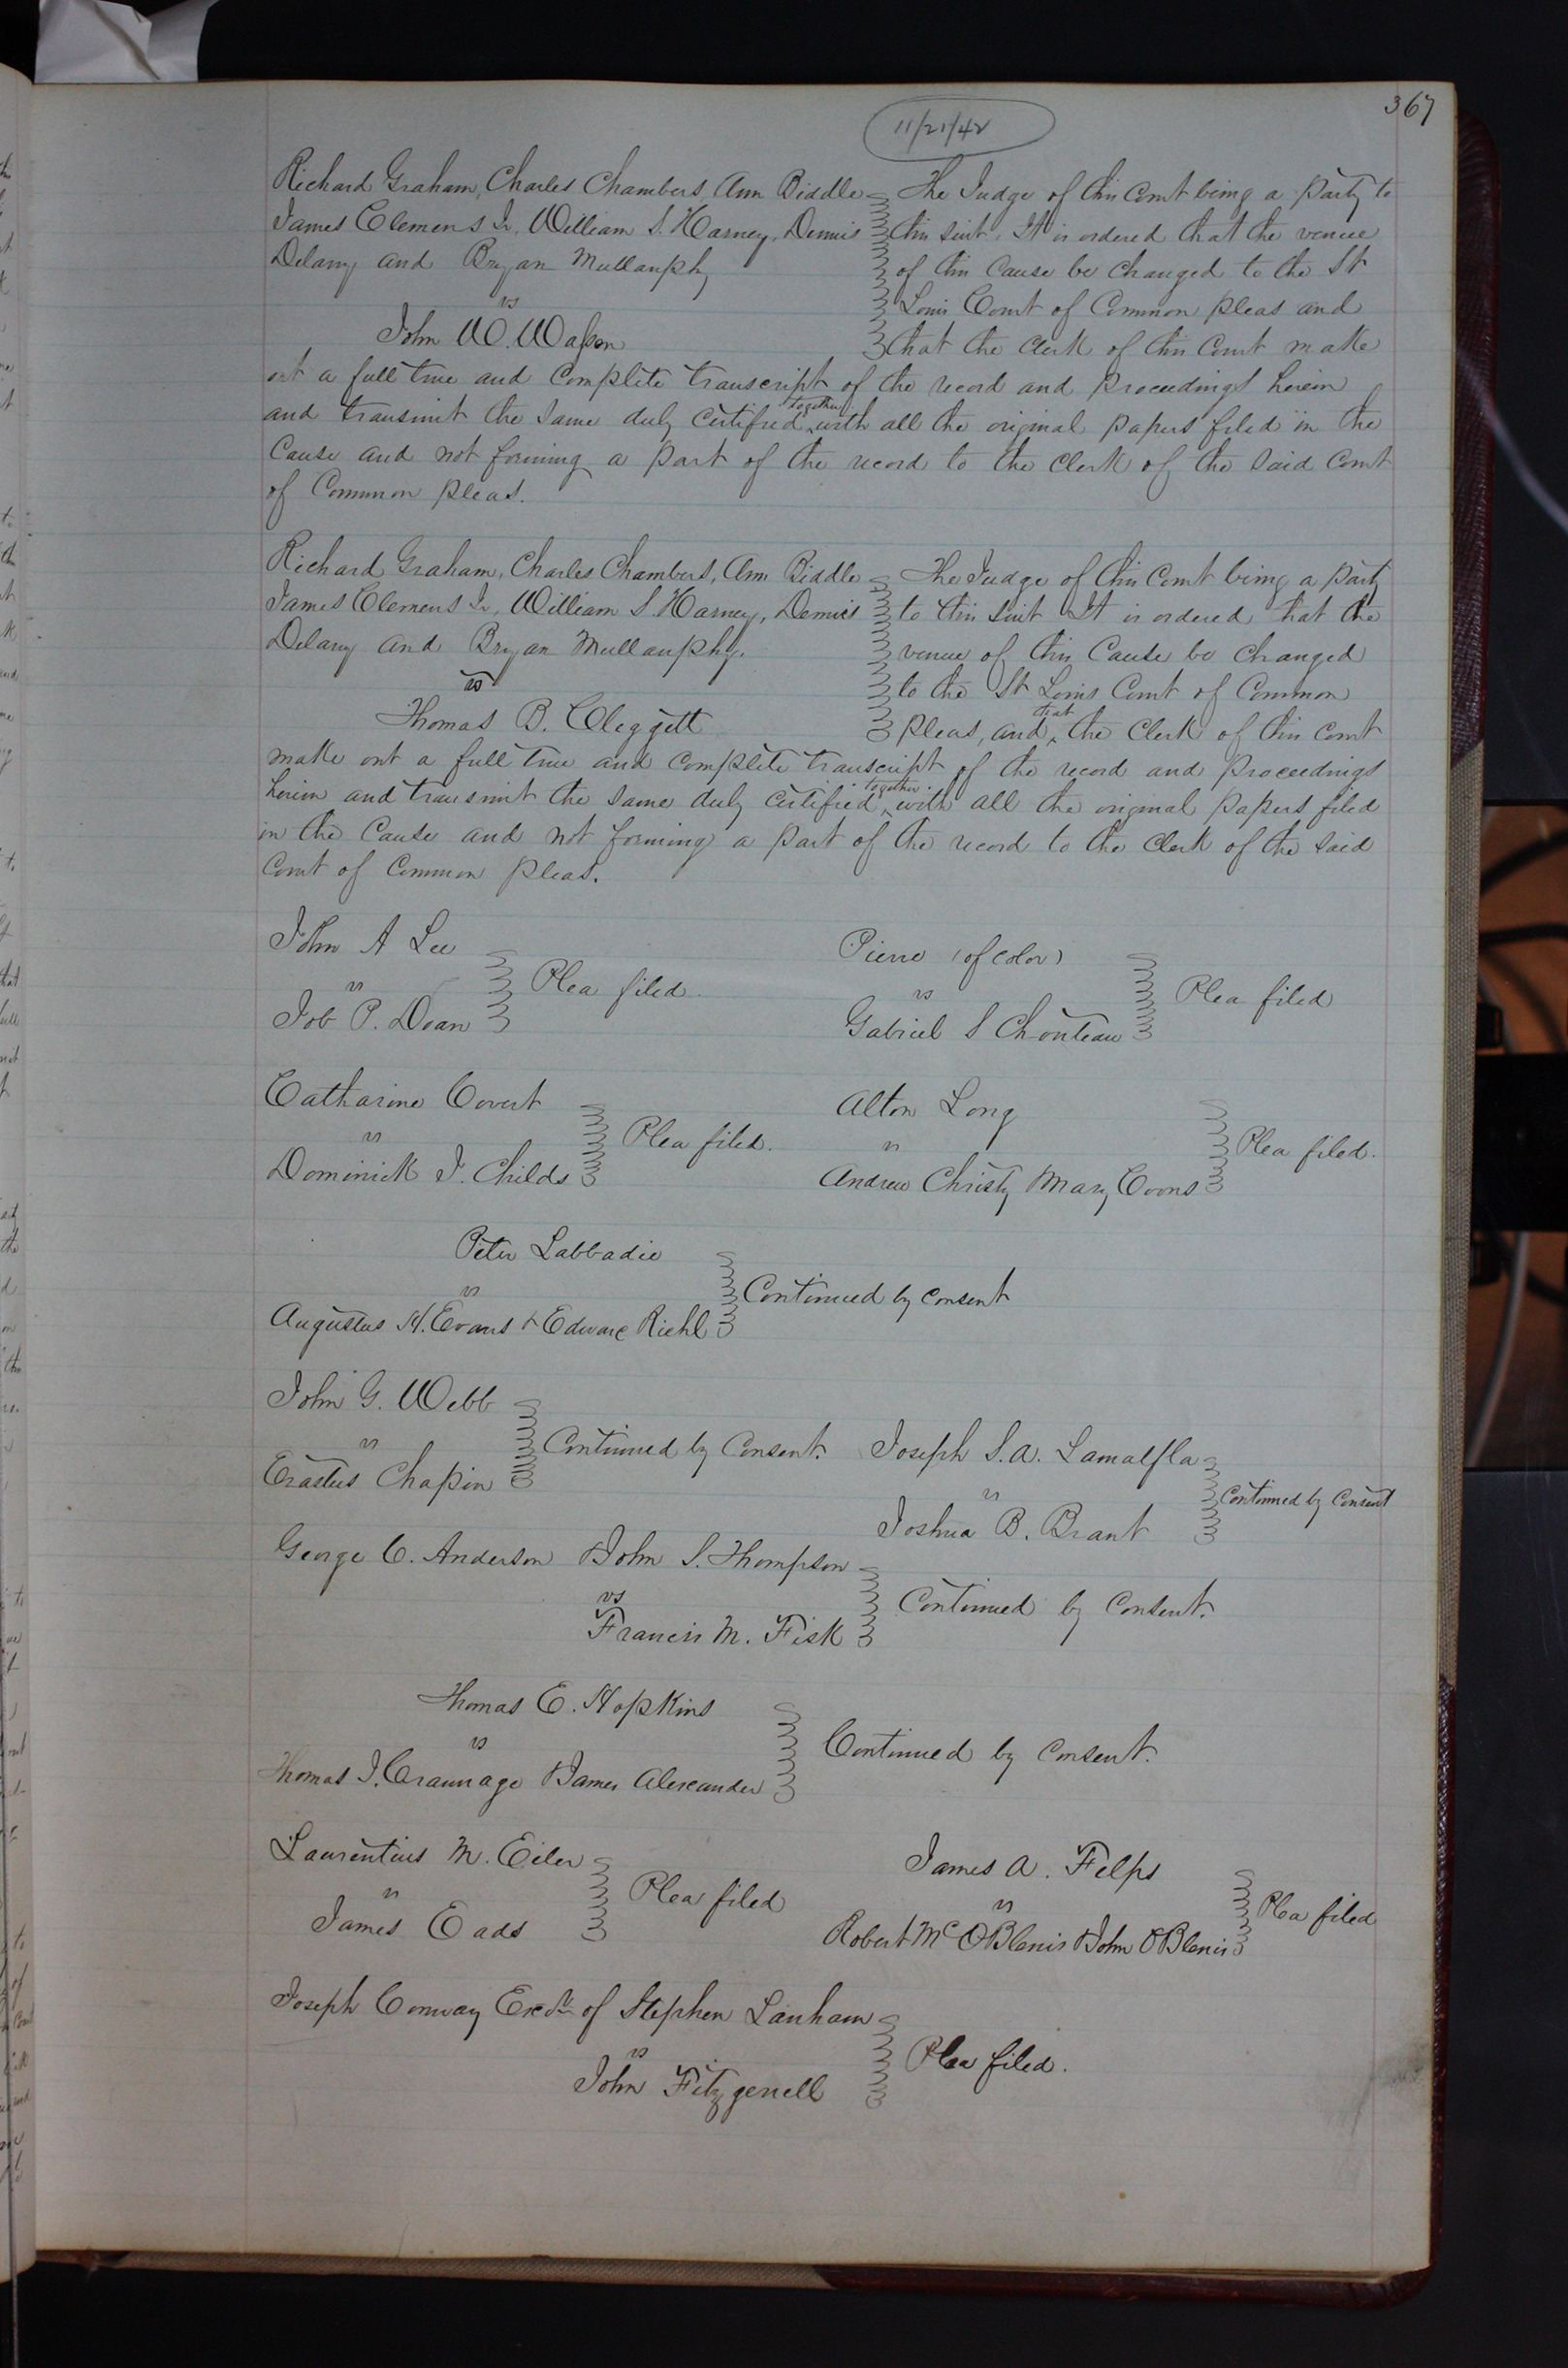 367
11/21/42
Richard Graham, Charles Chambers, Ann Biddle
James Clemens Jr, William S. Harney, Dennis
Delany and Bryan Mullanphy
vs
John W. Wasson
The Judge of this Court being a party to
this suit, It is ordered that the venue
of this Cause be changed to the St
Louis Court of Common pleas and
that the Clerk of this Court make
out a full true and complete transcript of the record and proceedings herein
and transmit the same duly certified together with all the original papers filed in the
Cause and not forming a part of the record to the Clerk of the said Court
of Common pleas.
Richard Graham, Charles Chambers, Ann Biddle
James Clemens Jr, William S. Harney, Dennis
Delany and Bryan Mullanphy.
vs
Thomas B. Cleggett
The Judge of this Court being a party
to this suit It is ordered that the
venue of this Cause be changed
to the St Louis Court of Common
pleas, and that the Clerk of this Court
make out a full true and complete transcript of the record and proceedings
herein and transmit the same duly certified together with all the original papers filed
in the Cause and not forming a part of the record to the Clerk of the said
Court of Common pleas.
John A Lee
vs
Job P. Doan
Plea filed
Pierre (of color)
vs
Gabriel S Chouteau
Plea filed
Catharine Covert
vs
Dominick J. Childs
Plea filed.
Alton Long
vs
Andrew Christy Mary Coons
Plea filed.
Peter Labbadie
vs
Augustus H. Evans & Edward Riehl
Continued by consent
John G. Webb
vs
Erastus Chapin
Continued by Consent.
Joseph S. A.
vs
Joshua B. Brant
Continued by Consent
George C. Anderson & John S. Thompson
vs
Francis M. Fisk
Continued by Consent.
Thomas E. Hopkins
vs
Thomas J. & James Alexander
Continued by Consent.
Laurentius M. Eiler
vs
James Eads
Plea filed
James A. Felps
vs
Robert Mc OBlenis & John OBlenis
Plea filed
Joseph Conway Execr of Stephen Lanham
vs
John Fitzgerrell
Plea filed.